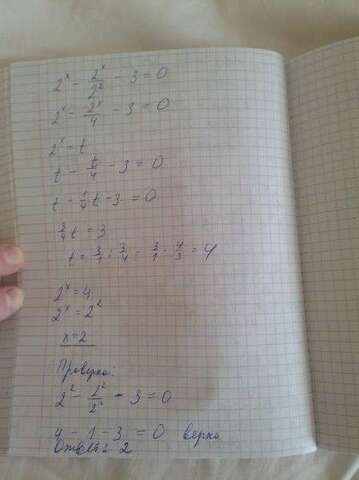 2^x - 2^x/2^2 - 3 = 0
2^x - 2^x/4 - 3 = 0
2^x = t
t - t/4 - 3 = 0
t - 1/4 t - 3 = 0
3/4 t = 3
t = 3/1 : 3/4 = 3/1 · 4/3 = 4
2^x = 4
2^x = 2^2
x = 2
Проверка:
2^2 - 2^2/2^2 - 3 = 0
4 - 1 - 3 = 0 верно
Ответ: 2